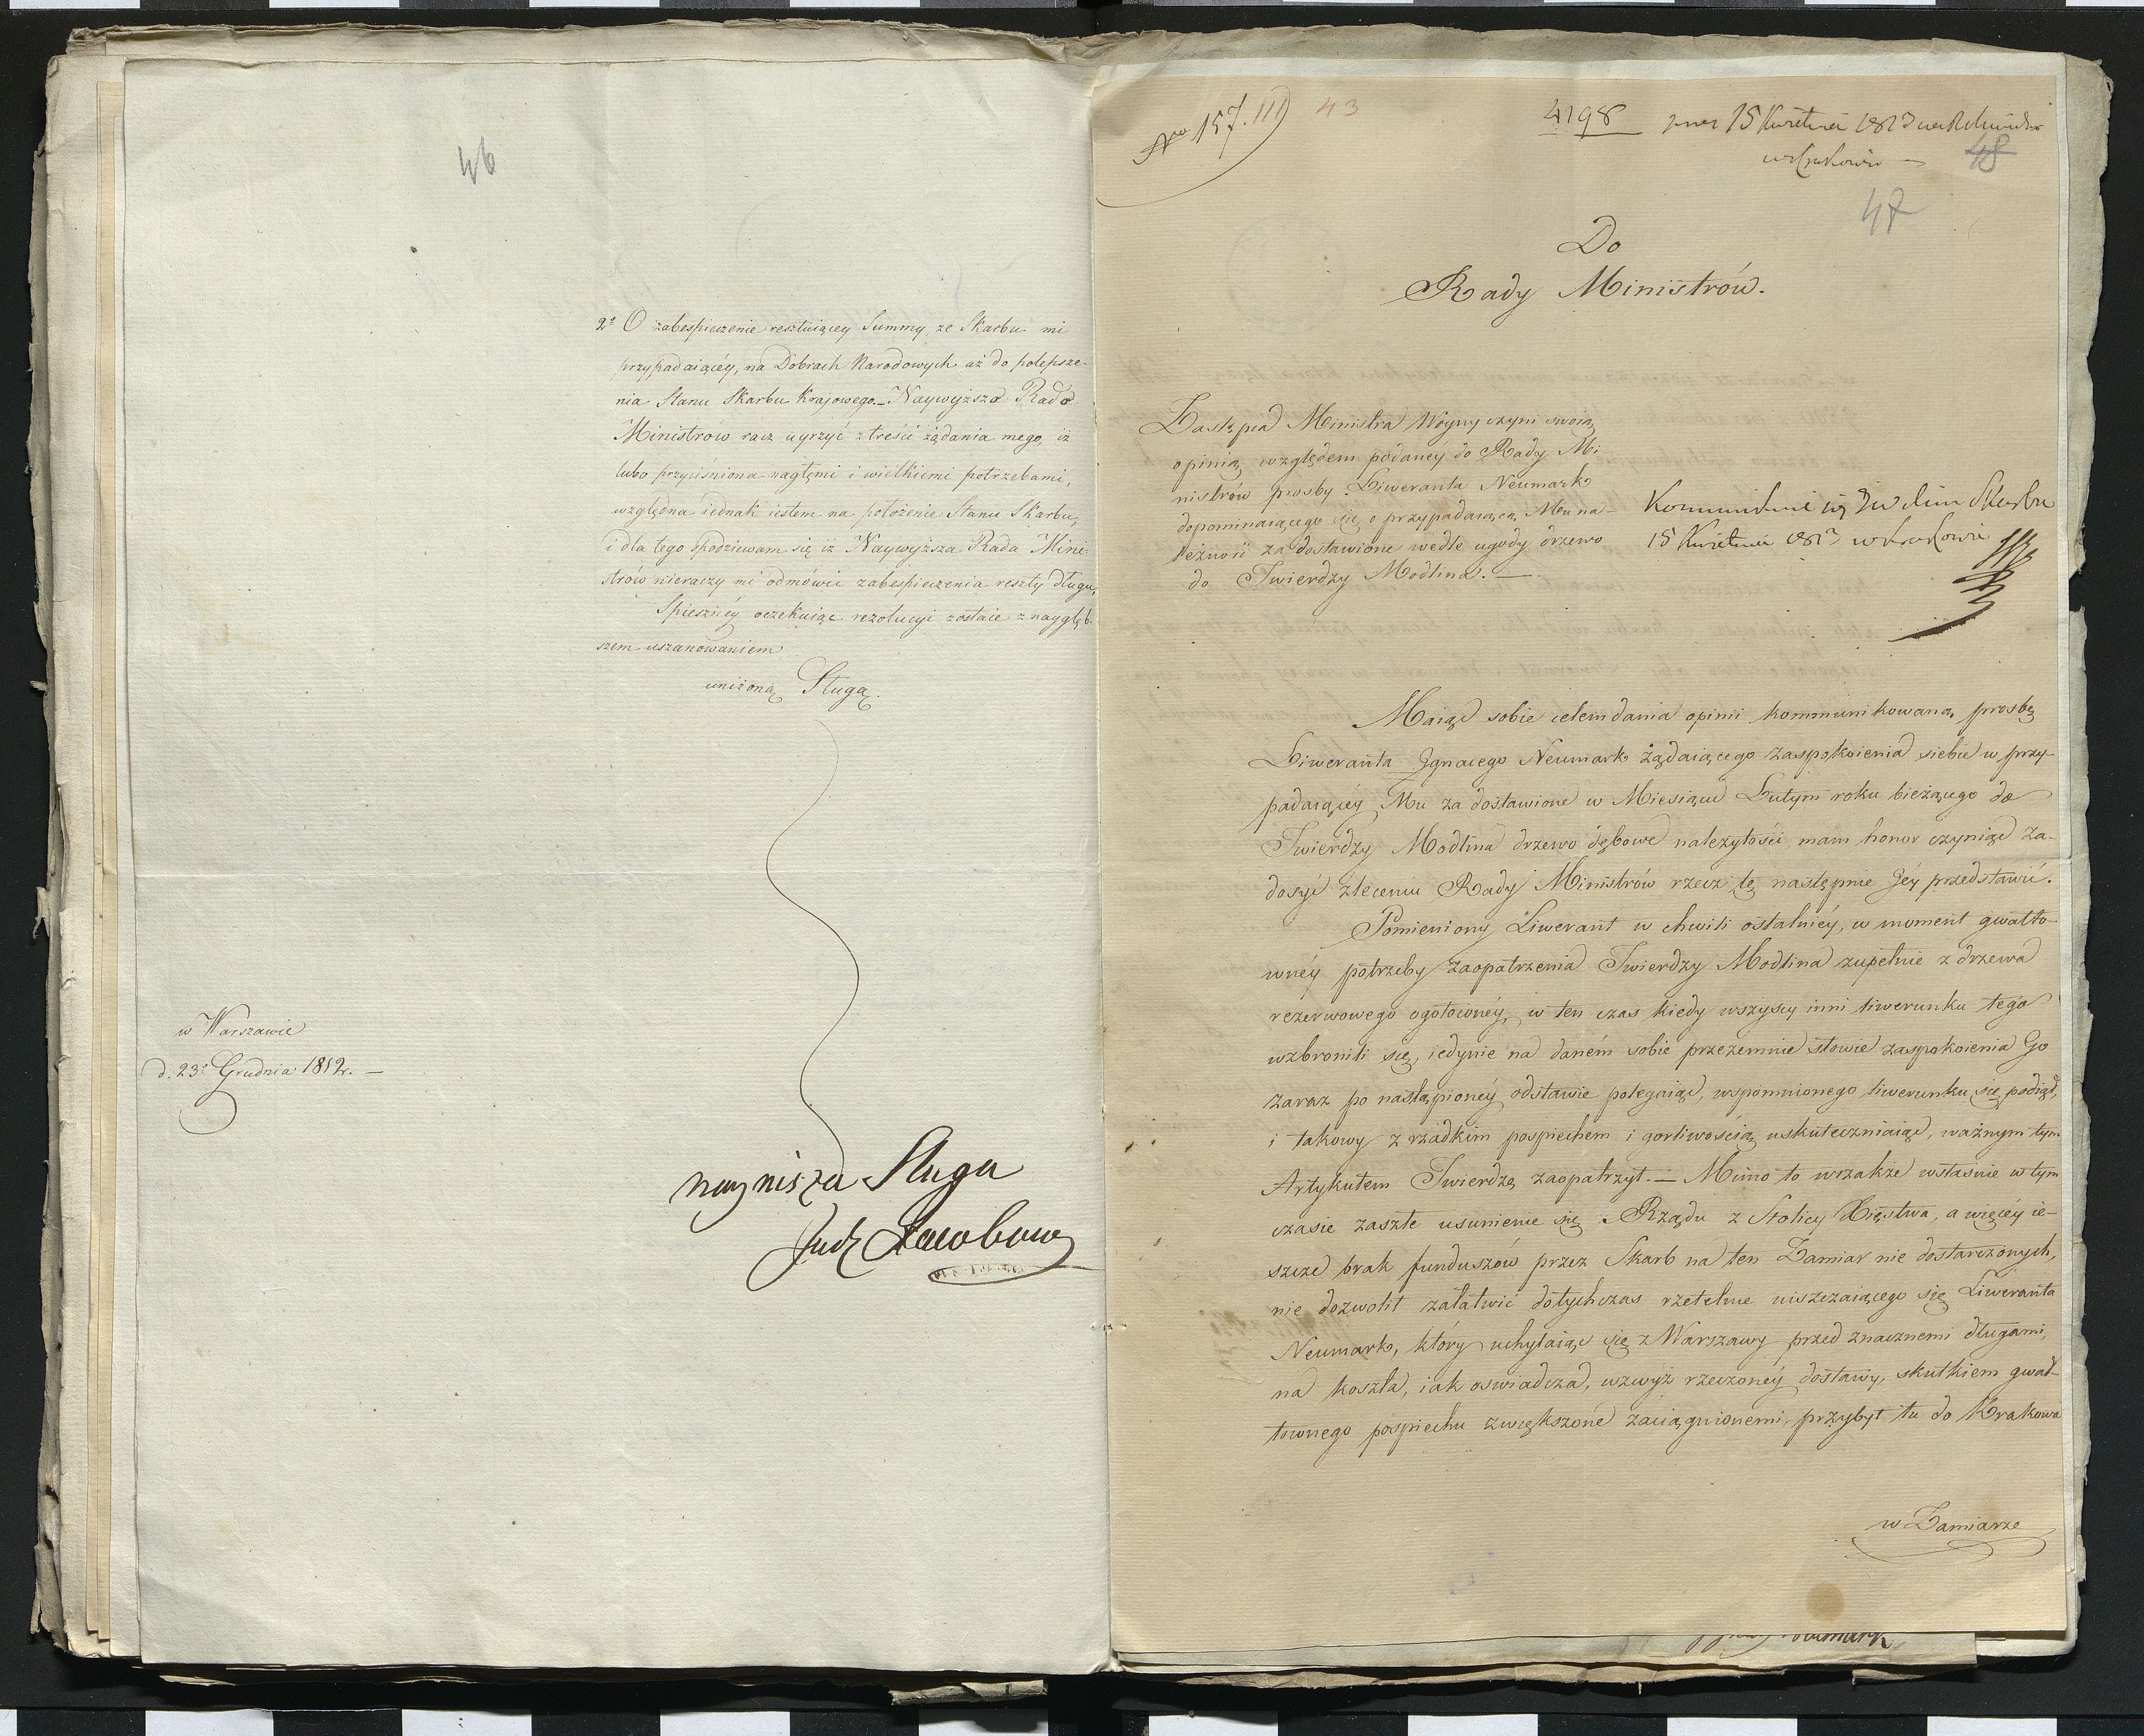 46
2o O zabespieczenie resztuiącey Summy, ze Skarbu mi
przypadaiącéy, na Dobrach Narodowych aż do polepsze-
nia Stanu Skarbu Krajowego. – Naywyższa Rada
Ministrów racz uyrzyć z treści żądania mego, iż
lubo przyciśniona nagłemi i wielkiemi potrzebami,
względna iednak iestem na położenie Stanu Skarbu,
i dla tego spodziewam się iż Naywyższa Rada Mini-
strów nieraczy mi odmówić zabespieczenia reszty długu,
Spieszney oczekuiąc rezolucyi zostaie z naygłęb-
szem uszanowaniem
uniżoną Sługą.
w Warszawie
d. 23o Grudnia 1812r. –
naynisza Sluga
Nro 157. III) 43
4198 15 Kwietnia 1813
w Krakowie – 48
47
Do
Rady Ministrów.
Zastępca Ministra Woyny czyni swoią
opinią względem podanéy do Rady Mi-
nistrów prosby Liweranta Neumark
dopominaiącego się o przypadaiącą Mu na-
leżność za dostawione wedle ugody drzewo
do Twierdzy Modlina. —
Skarbu
15 Kwietnia 1813 w Krakowie
Maiąc sobie celem dania opinii kommunikowaną prosbę
Liweranta Ignacego Neumark żądaiącego zaspokoienia siebie w przy-
padaiącéy Mu za dostawione w Miesiącu Lutym roku bieżącego do
Twierdzy Modlina drzewo dębowe należytości, mam honor czyniąc za-
dosyć zleceniu Rady Ministrów rzecz tę następnie Jéy przedstawić.
Pomieniony Liwerant w chwili ostatniéy, w moment gwałto-
wnéy potrzeby zaopatrzenia Twierdzy Modlina zupełnie z drzewa
rezerwowego ogołoconéy, w ten czas kiedy wszyscy inni liwerunku tego
wzbronili się, iedynie na daném sobie przezemnie słowie zaspokoienia Go
zaraz po nastąpionéy odstawie polegaiąc, wspomnionego liwerunku się podiął,
i takowy z rzadkim pospiechem i gorliwością uskuteczniaiąc, ważnym tym
Artykułem Twierdzę zaopatrzył. — Mimo to wszakże własnie w tym
czasie zaszłe usunienie się Rządu z Stolicy Xięstwa, a więcéy ie-
szcze brak funduszów przez Skarb na ten Zamiar nie dostarczonych,
nie dozwolił załatwić dotychczas rzetelnie uiszczaiącego się Liweranta
Neumark, który uchylaiąc się z Warszawy przed znacznemi długami,
na koszta, iak oswiadcza, wzwyż rzeczonéy dostawy, skutkiem gwał-
townego pospiechu zwiększone zaciągnionemi, przybył tu do Krakowa
w Zamiarze